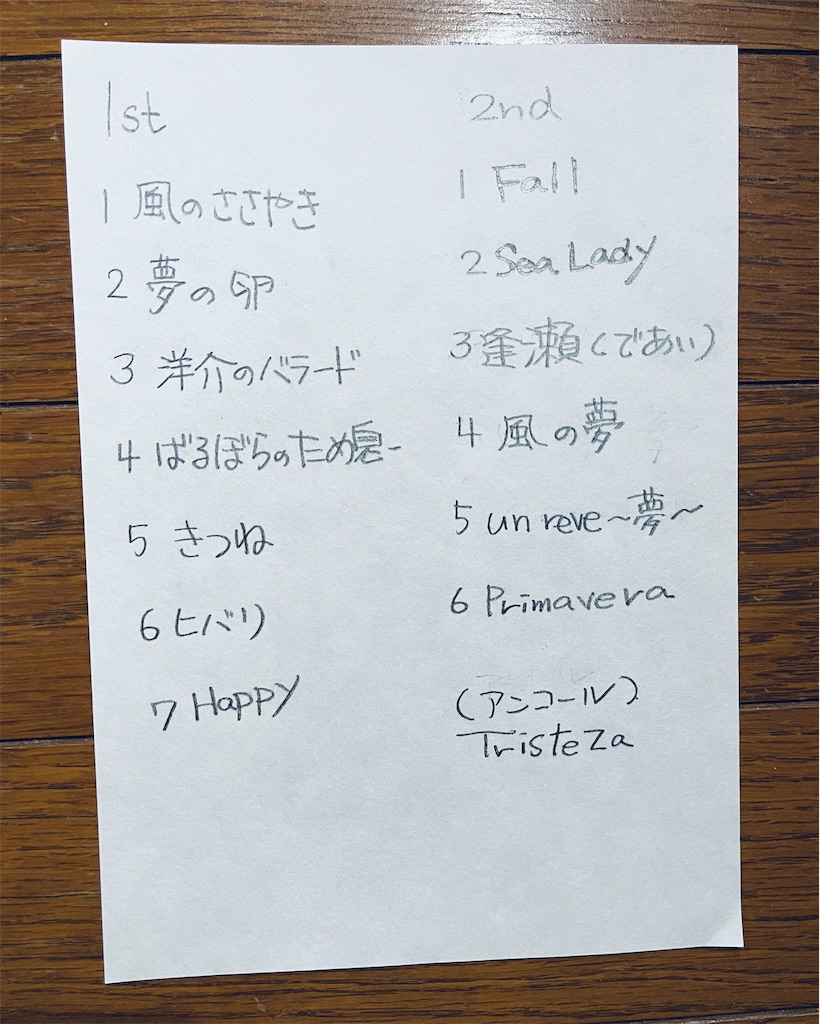 1st
1 風のささやき
2 夢の卵
3 洋介のバラード
4 ばるぼらのため息-
5 きつね
6 ヒバリ
7 Happy
2nd
1 Fall
2 Sea Lady
3 逢瀬(であい)
4 風の夢
5 un reve〜夢〜
6 Primavera
(アンコール)
Tristeza